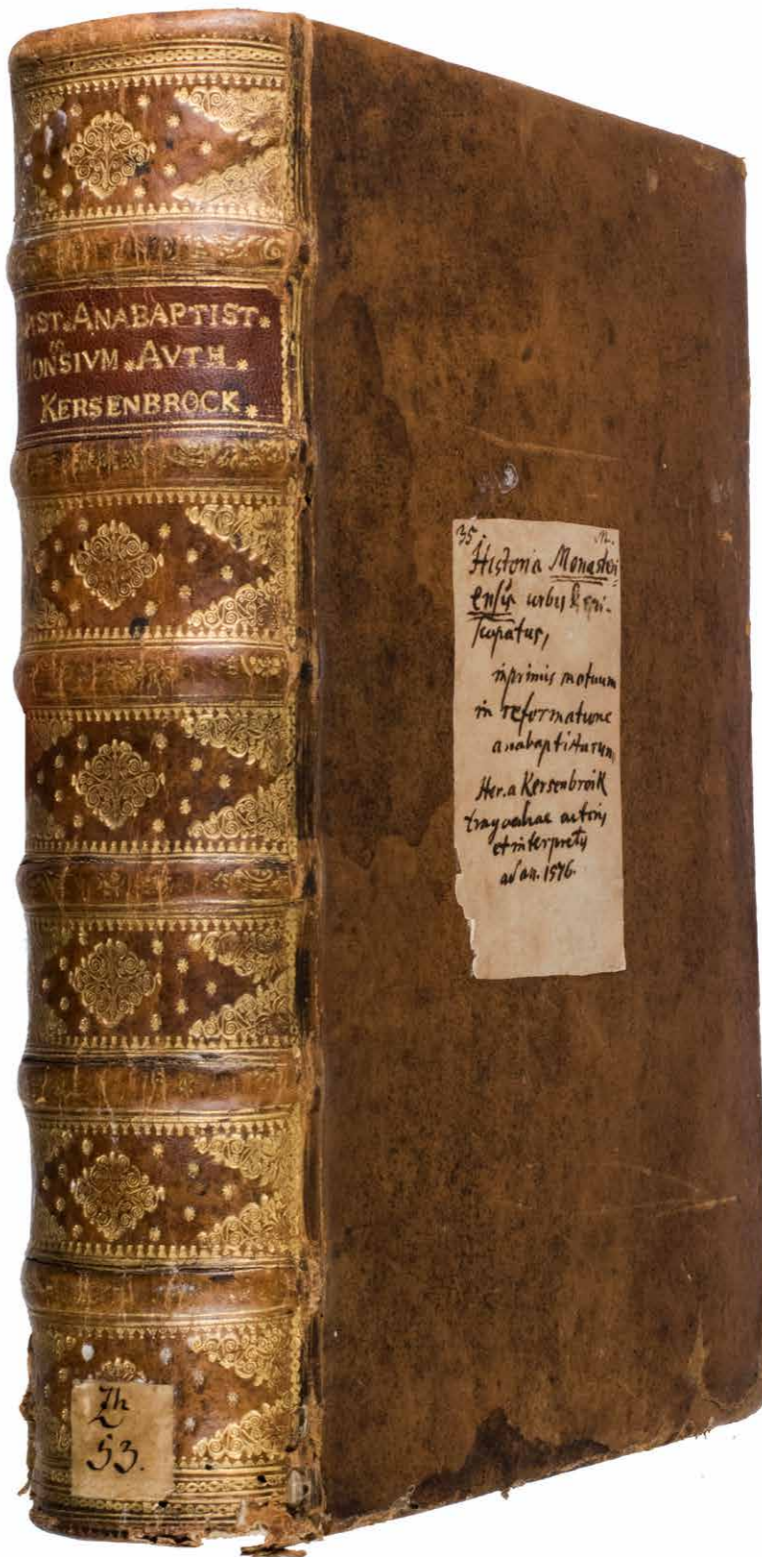 HIST. ANABAPTIST.
MONSIVM. AVTH.
KERSENBROCK.
35.
Historia Monasteri
ensis urbis & epi-
scopatus,
inprimis motuum
in reformatione
anabaptistarum
Her. a Kersenbroik
tragoediae actoris
et interpretis
ad an. 1576.
53.